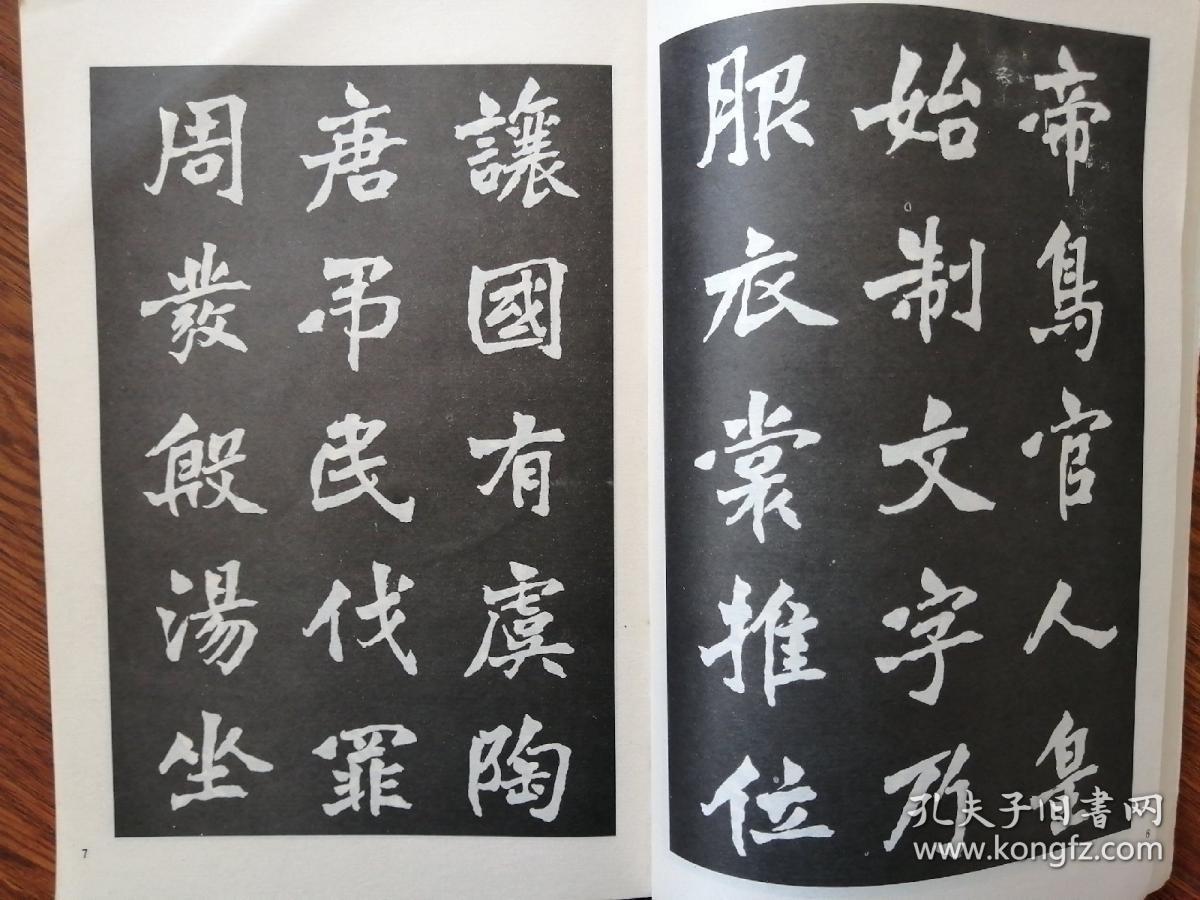 帝鳥官人皇
始制文字乃
服衣裳推位
6
讓國有虞陶
唐弔民伐罪
周發殷湯坐
7
孔夫子旧书网
www.kongfz.com